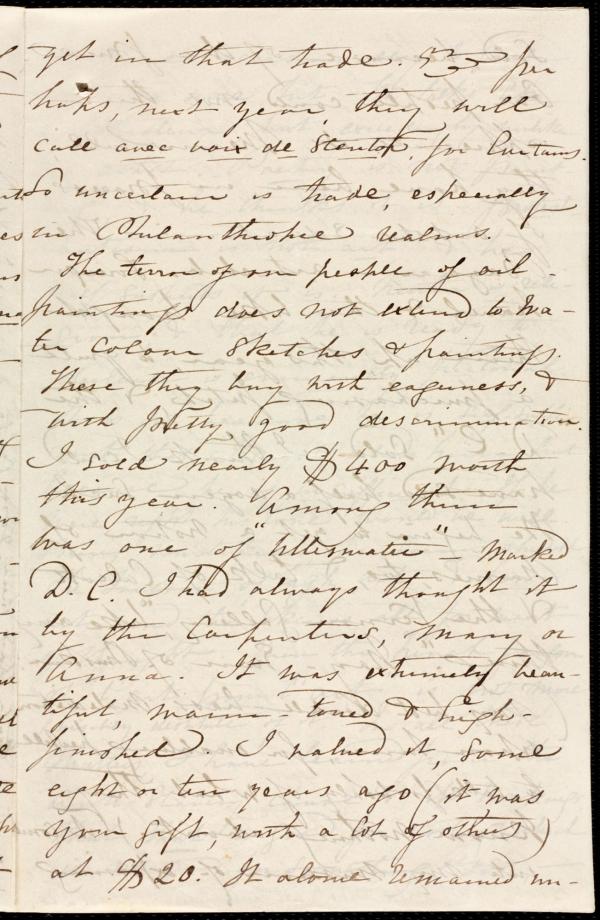 yet in that trade. Per
haps, next year, they will
call avec voix de Stentor, for Curtains.
So uncertain is trade, especially
in Philanthropic realms.
The terror of our people of oil-
paintings does not extend to Wa-
ter Colour Sketches & paintings.
These they buy with eagerness, &
with pretty good descrimination.
I sold nearly $400 worth
this year. Among them
was one of "Ullswater" - marked
D. C. I had always thought it
by the Carpenters, Mary or
Anna. It was extremely beau-
tiful, warm-toned & high-
finished. I valued it, some
eight or ten years ago (it was
your gift, with a lot of others)
at $20. It alone remained un-